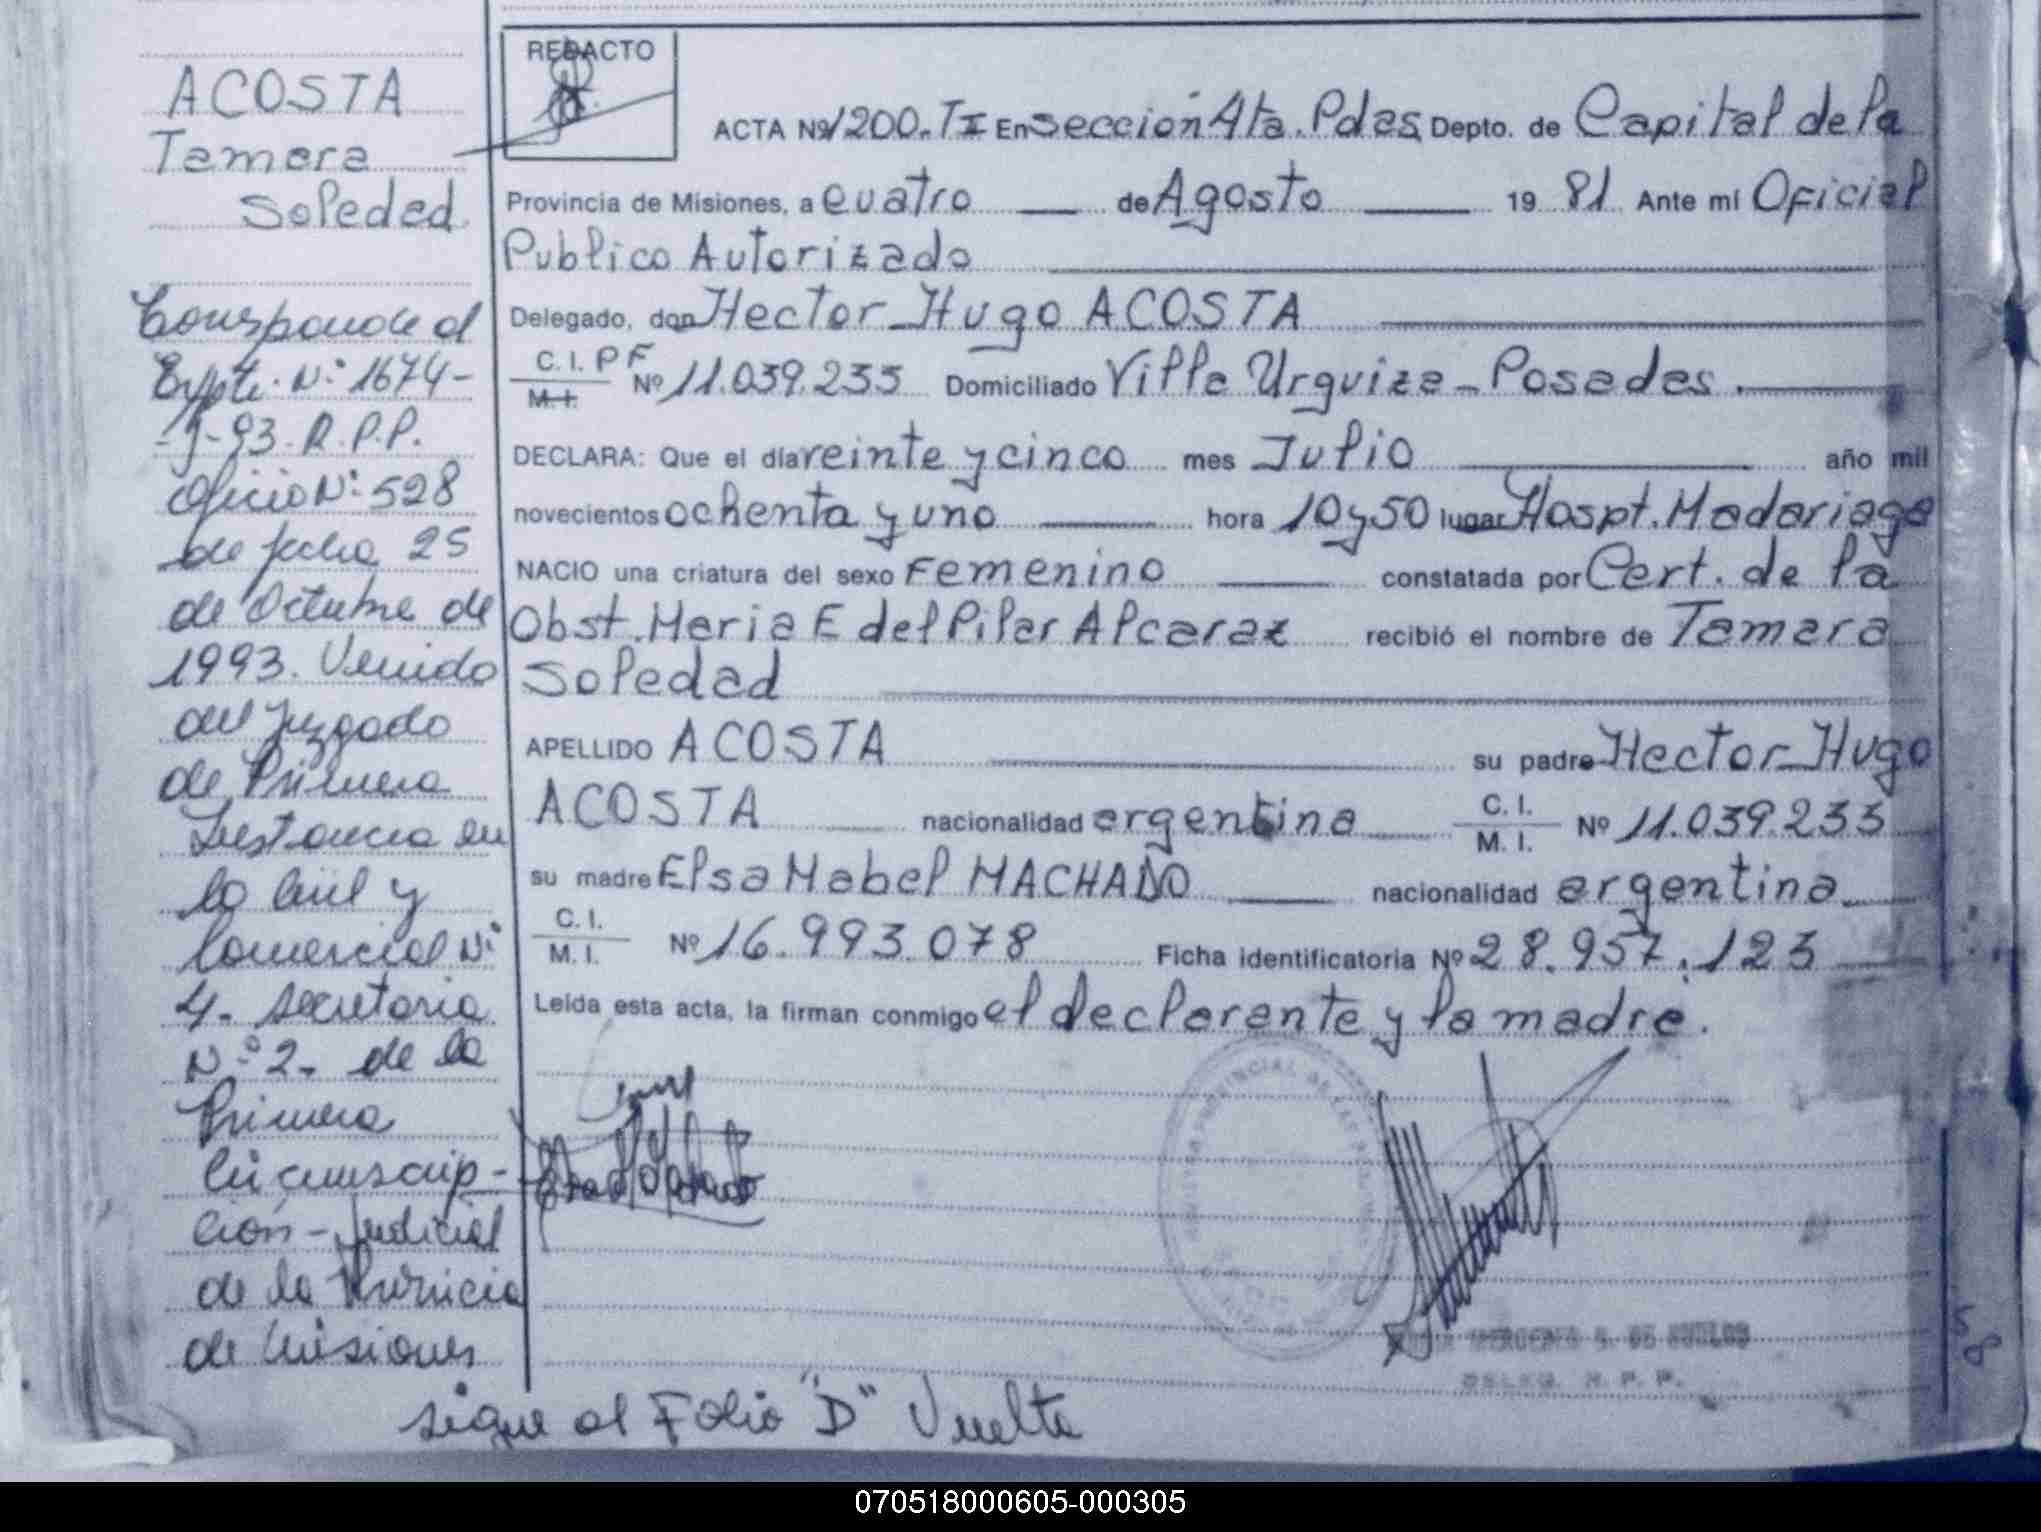 ACOSTA
Tamara
Soledad
Corresponde al
Expte. Nº 1674-
-J-93-R.P.P.
Oficio Nº 528
de fecha 25
de Octubre de
1993. Venido
del Juzgado
de Primera
Instancia en
lo Civil y
Comercial Nº
4- Secretaria
Nº 2- de la
Primera
Circunscrip-
ción-Judicial
de la Provincia
de Misiones
REDACTO
ACTA Nº 1200-TI En Sección 4ta. Pdas Depto. de Capital de la
Provincia de Misiones, a cuatro de Agosto 19 81 Ante mí Oficial
Publico Autorizado
Delegado, don Hector Hugo ACOSTA
C. I. PF
M. I. Nº 11.039.233 Domiciliado Villa Urquiza - Posadas.
DECLARA: Que el día veinte y cinco mes Julio año mil
novecientos ochenta y uno hora 10 y 50 lugar Hospt. Madariaga
NACIO una criatura del sexo Femenino constatada por Cert. de la
Obst. Maria E del Pilar Alcaraz recibió el nombre de Tamara
Soledad
APELLIDO ACOSTA su padre Hector Hugo
ACOSTA nacionalidad argentina C. I. M. I. Nº 11.039.233
su madre Elsa Mabel MACHADO nacionalidad argentina
C. I. M. I. Nº 16.993.078 Ficha identificatoria Nº 28.957.123
Leída esta acta, la firman conmigo el declarante y la madre.
DELEG. R. P. P.
58
sigue al Folio "D" Vuelta
070518000605-000305